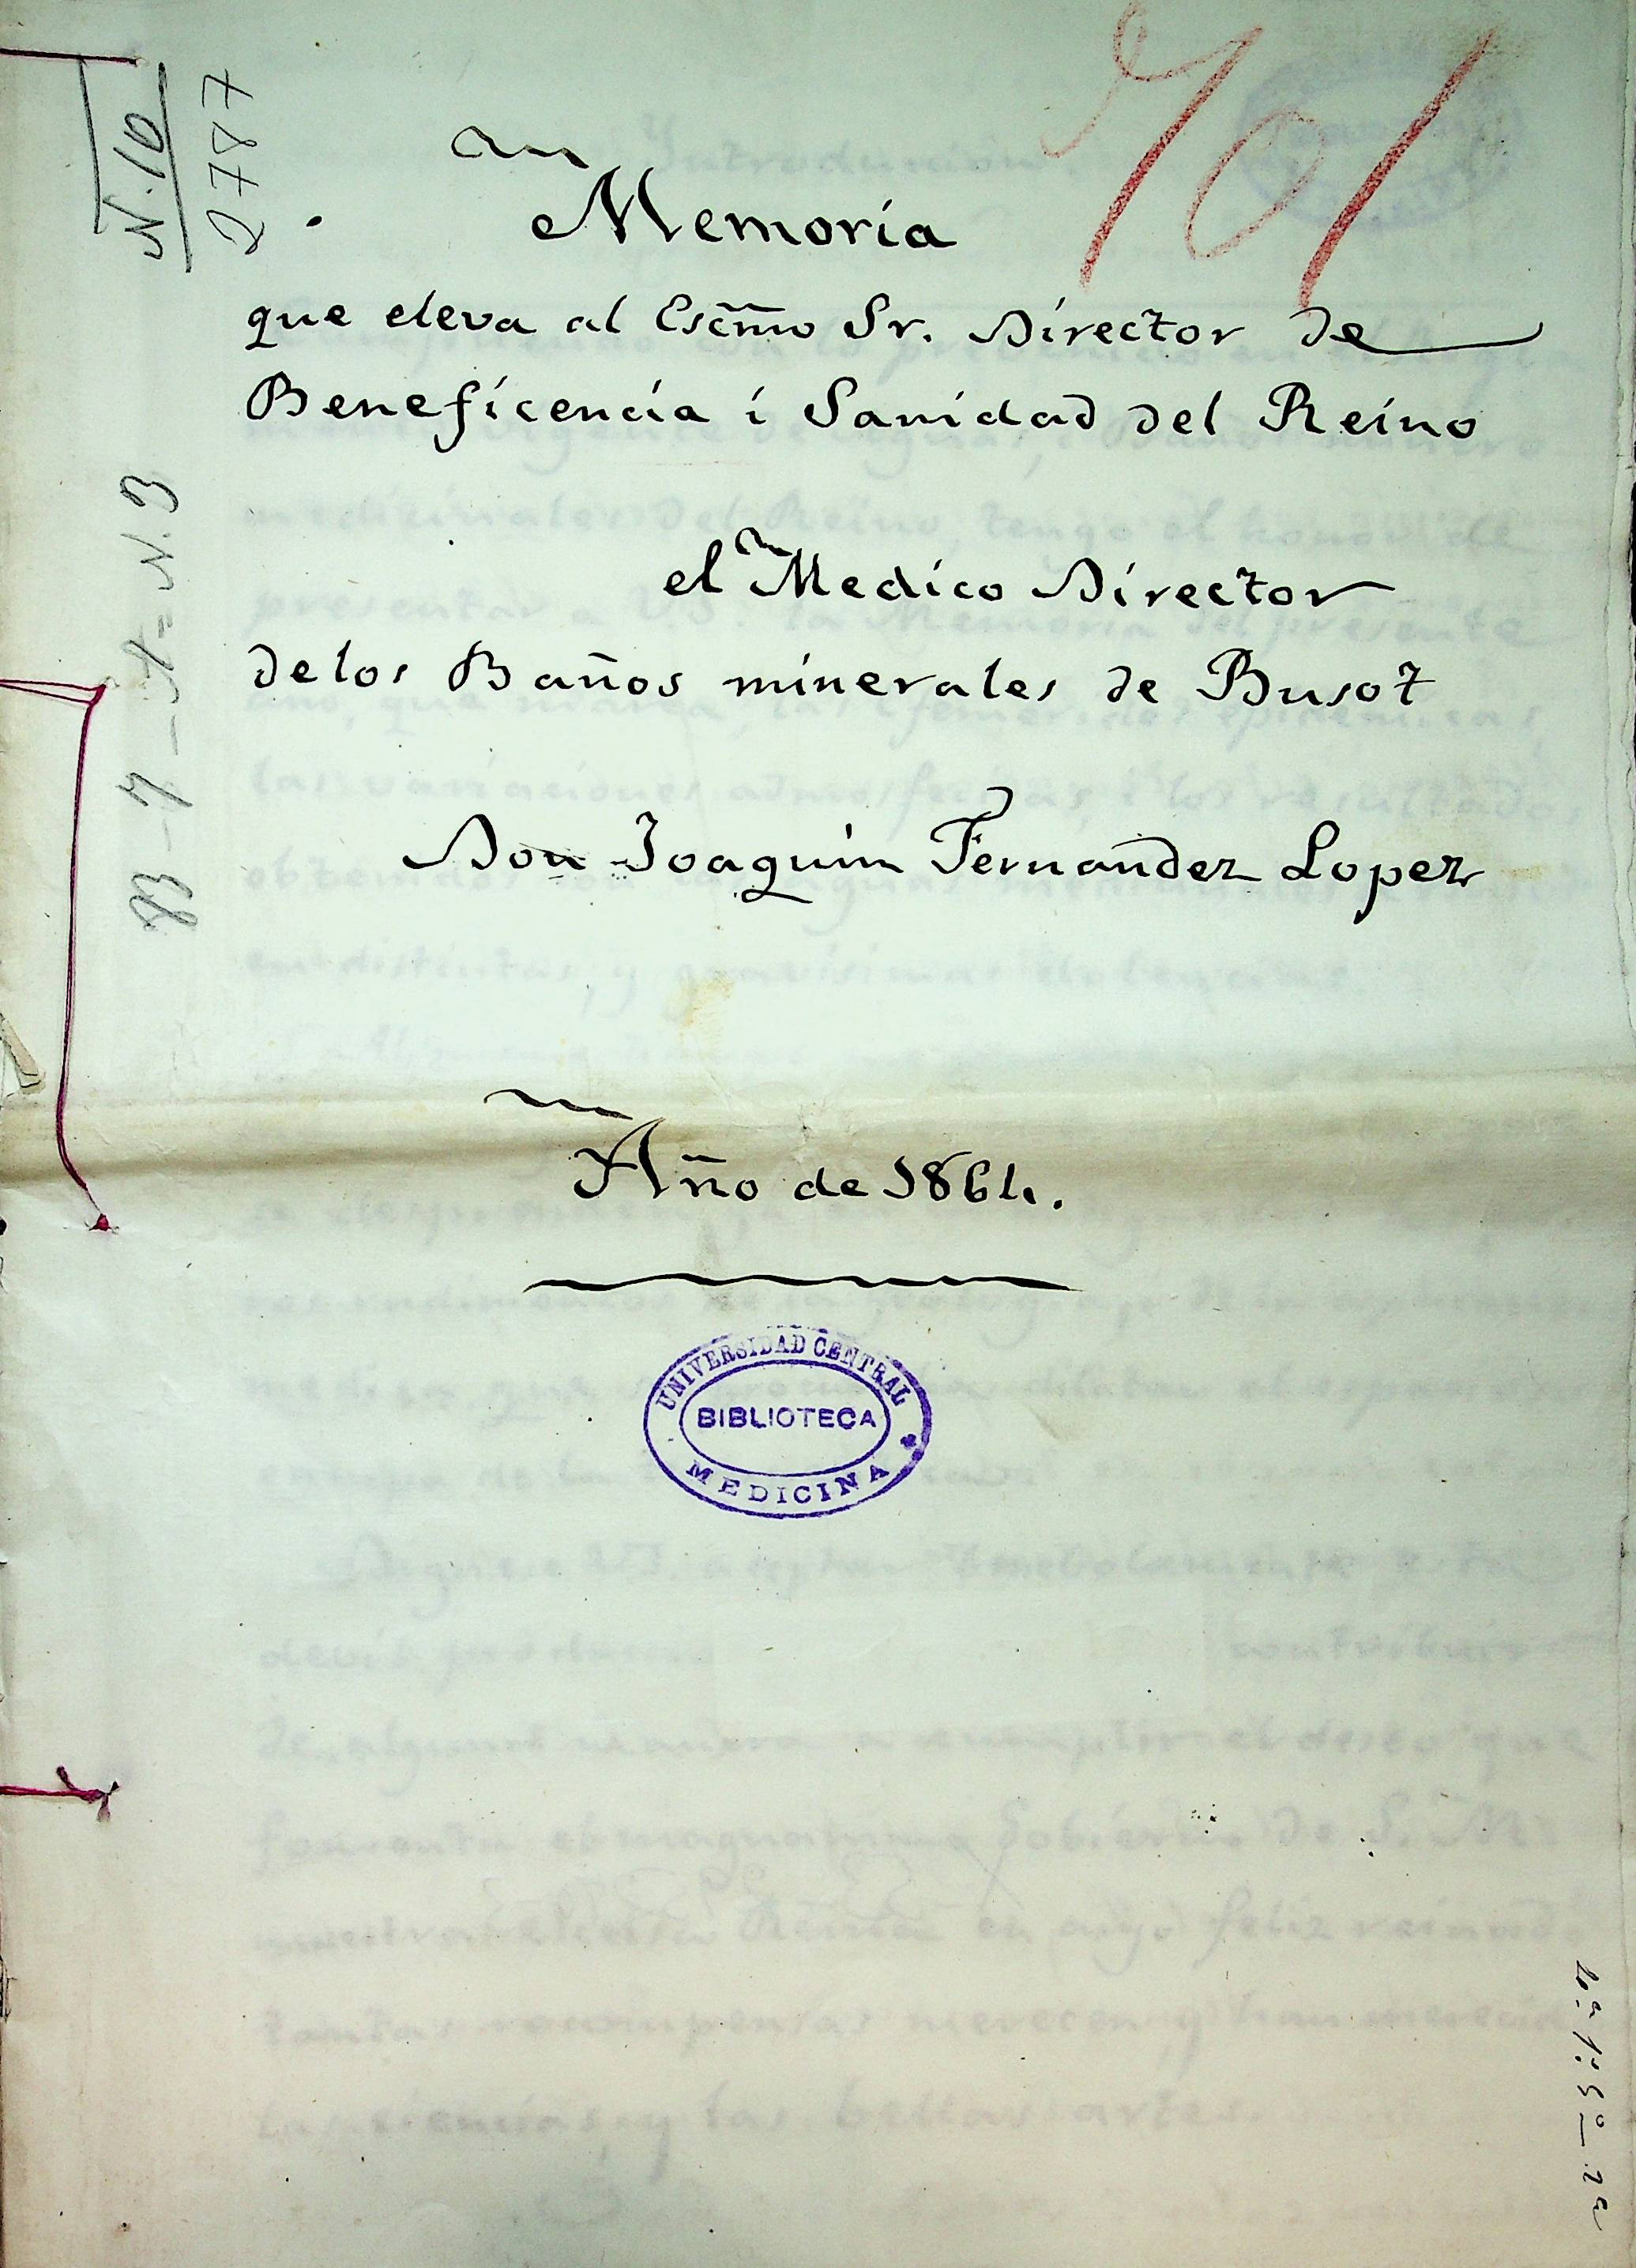 701
N. 10
2787
Memoria
que eleva al Escm̃o Sr. Director de
Beneficencia i Sanidad del Reino
el Medico Director
de los Baños minerales de Busot
Don Joaquin Fernandez Lopez
83-7-A=N.3
Año de 1864.
UNIVERSIDAD CENTRAL
BIBLIOTECA
MEDICINA